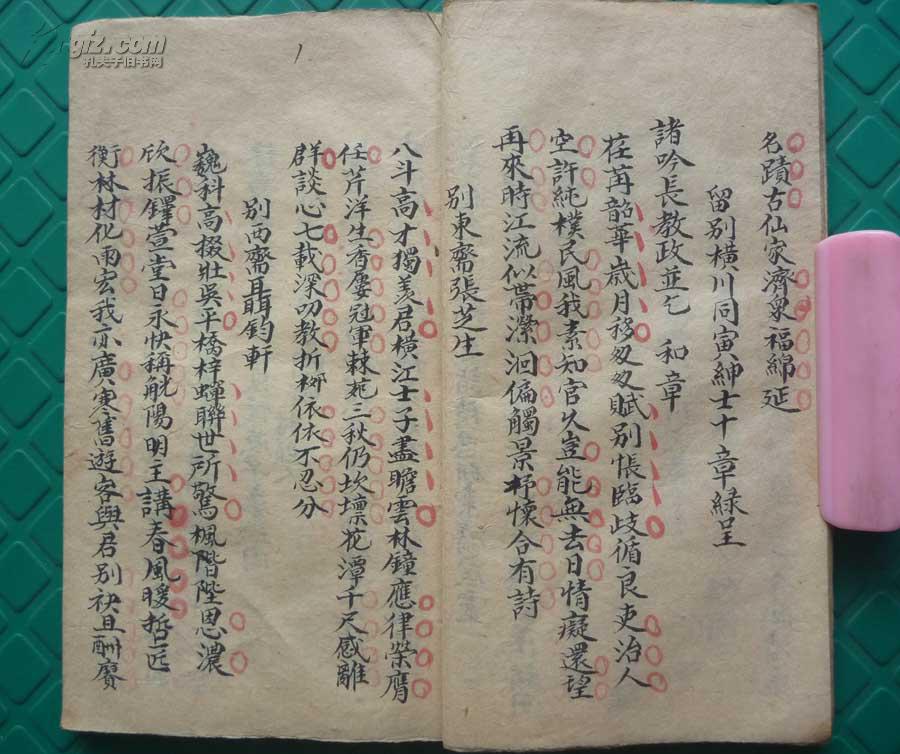 名蹟古仙家濟衆福綿延
留别横川同寅紳士十章緑呈
諸吟長教政並乞 和章
荏苒韶華歲月移匆匆賦别悵臨歧循良吏治人
空許純樸民風我素知官久豈能無去日情癡還望
再來時江流似帶瀠洄偏觸景抒懷合有詩
别東齋張芝生
八斗高才獨羨君横江士子盡瞻雲林鐘應律榮膺
任芹泮生香屢冠軍棘苑三秋仍坎壈花潭千尺感離
群談心七載深叨教折柳依依不忍分
别西齋聶鈞軒
巍科高掇壯吴平橋梓蟬聯世所驚楓階陛恩濃
欣振鐸萱堂日永快稱觥陽明主講春風暖哲匠
衡林材化雨宏我亦廣寒舊遊客與君别袂且酬賡
giz.com
孔夫子旧书网